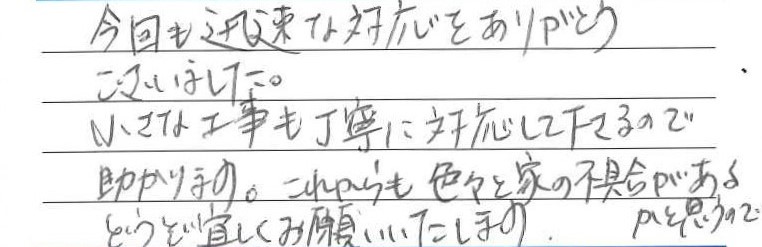 今回も迅速な対応をありがとう
ございました。
小さな工事も丁寧に対応して下さるので
助かります。これからも色々と家の不具合がある
かと思うので
どうぞ宜しくお願いいたします.